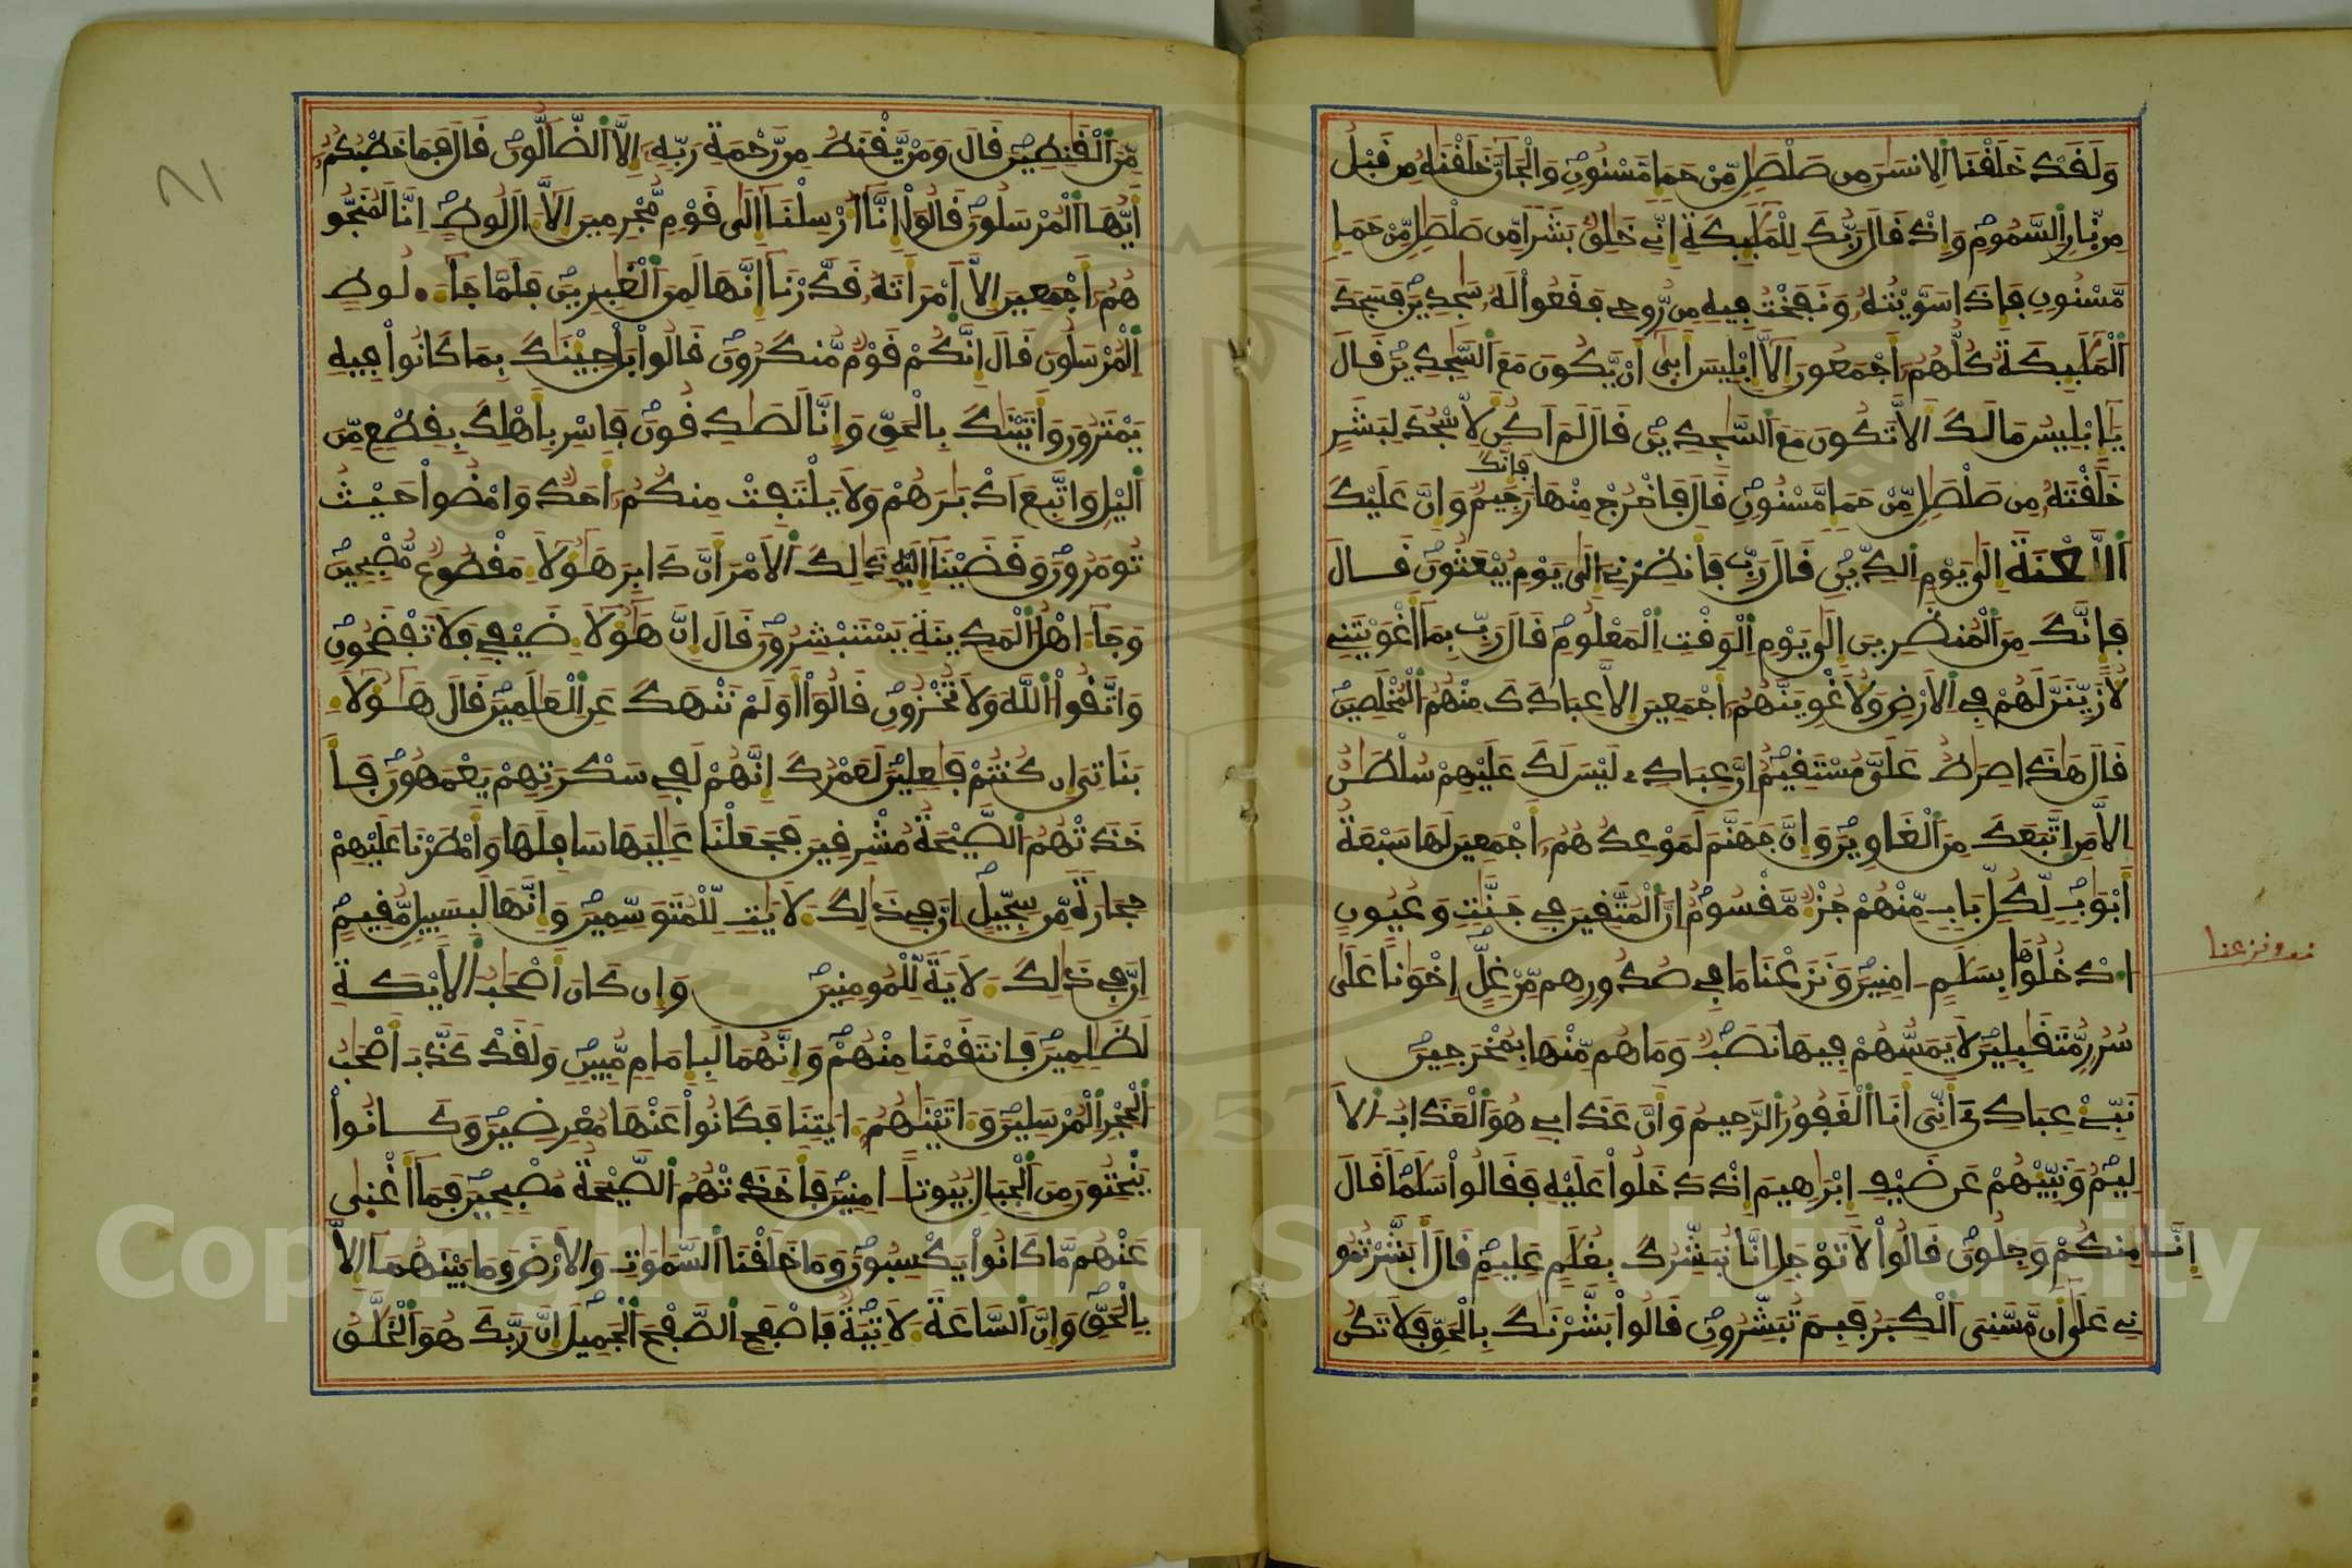 وَلَقَدْ خَلَقْنَا اَلِانسَٰنَ مِن صَلْصَٰلٖ مِّنْ حَمَإٖ مَّسْنُونٖ وَالْجَآنَّ خَلَقْنَٰهُ مِن قَبْلُ
مِن نّارِ اِلسَّمُومِ وَإِذْ قَالَ رَبُّكَ لِلْمَلَٰٓئِكَةِ إِنِّے خَٰلِقُۢ بَشَراٗ مِّن صَلْصَٰلٖ مِّنْ حَمَإٖ
مَّسْنُونٖ فَإِذَا سَوَّيْتُهُۥ وَنَفَخْتُ فِيهِ مِن رُّوحِے فَقَعُواْ لَهُۥ سَٰجِدِينَ فَسَجَدَ
اَلْمَلَٰٓئِكَةُ كُلُّهُمُۥٓ أَجْمَعُونَ إِلَّآ إِبْلِيسَ أَبَىٰٓ أَنْ يَّكُونَ مَعَ اَلسَّٰجِدِينَ قَالَ
يَٰٓإِبْلِيسُ مَا لَكَ أَلَّا تَكُونَ مَعَ اَلسَّٰجِدِينَ قَالَ لَمَ اَكُن لِّأَسْجُدَ لِبَشَرٍ
خَلَقْتَهُۥ مِن صَلْصَٰلٖ مِّنْ حَمَإٖ مَّسْنُونٖ قَالَ فَاخْرُجْ مِنْهَا فَإِنَّكَ رَجِيمٞ وَإِنَّ عَلَيْكَ
اَللَّعْنَةَ إِلَىٰ يَوْمِ اِلدِّينِ قَالَ رَبِّ فَأَنظِرْنِے إِلَىٰ يَوْمِ يُبْعَثُونَ قَالَ
فَإِنَّكَ مِنَ اَلْمُنظَرِينَ إِلَىٰ يَوْمِ اِلْوَقْتِ اِلْمَعْلُومِ قَالَ رَبِّ بِمَآ أَغْوَيْتَنِے
لَأُزَيِّنَنَّ لَهُمْ فِے اِلْأَرْضِ وَلَأُغْوِيَنَّهُمُۥٓ أَجْمَعِينَ إِلَّا عِبَادَكَ مِنْهُمُ اُلْمُخْلَصِينَ
قَالَ هَٰذَا صِرَٰطٌ عَلَيَّ مُسْتَقِيمٌ إِنَّ عِبَادِے لَيْسَ لَكَ عَلَيْهِمْ سُلْطَٰنٌ
إِلَّا مَنِ اِتَّبَعَكَ مِنَ اَلْغَاوِينَ وَإِنَّ جَهَنَّمَ لَمَوْعِدُهُمُۥٓ أَجْمَعِينَ لَهَا سَبْعَةُ
أَبْوَٰبٖ لِّكُلِّ بَابٖ مِّنْهُمْ جُزْءٞ مَّقْسُومٌ إِنَّ اَلْمُتَّقِينَ فِے جَنَّٰتٖ وَعُيُونٍ
اُدْخُلُوهَا بِسَلَٰمٍ اٰمِنِينَ وَنَزَعْنَا مَا فِے صُدُورِهِم مِّنْ غِلٍّ إِخْوَٰناً عَلَىٰ
سُرُرٖ مُّتَقَٰبِلِينَ لَا يَمَسُّهُمْ فِيهَا نَصَبٞ وَمَا هُم مِّنْهَا بِمُخْرَجِينَ
نَبِّئْ عِبَادِيَ أَنِّيَ أَنَا اَلْغَفُورُ اُلرَّحِيمُ وَأَنَّ عَذَابِے هُوَ اَلْعَذَابُ اُلْأَ
لِيمُ وَنَبِّئْهُمْ عَن ضَيْفِ إِبْرَٰهِيمَ إِذْ دَخَلُواْ عَلَيْهِ فَقَالُواْ سَلَٰماٗ قَالَ
إِنَّا مِنكُمْ وَجِلُونَ قَالُواْ لَا تَوْجَلِ اِنَّا نُبَشِّرُكَ بِغُلَٰمٍ عَلِيمٖ قَالَ أَبَشَّرْتُمُو
نِے عَلَىٰٓ أَن مَّسَّنِيَ اَلْكِبَرُ فَبِمَ تُبَشِّرُونِ قَالُواْ بَشَّرْنَٰكَ بِالْحَقِّ فَلَا تَكُن
ونزعنا
مِّنَ اَلْقَٰنِطِينَ قَالَ وَمَنْ يَّقْنَطُ مِن رَّحْمَةِ رَبِّهِۦٓ إِلَّا اَلضَّآلُّونَ قَالَ فَمَا خَطْبُكُمُۥٓ
أَيُّهَا اَلْمُرْسَلُونَ قَالُوٓاْ إِنَّآ أُرْسِلْنَآ إِلَىٰ قَوْمٖ مُّجْرِمِينَ إِلَّآ ءَالَ لُوطٍ اِنَّا لَمُنَجُّو
هُمُۥٓ أَجْمَعِينَ إِلَّا اَمْرَأَتَهُۥ قَدَّرْنَآ إِنَّهَا لَمِنَ اَلْغَٰبِرِينَ فَلَمَّا جَآءَ اٰلَ لُوطٍ
اِلْمُرْسَلُونَ قَالَ إِنَّكُمْ قَوْمٞ مُّنكَرُونَ قَالُواْ بَلْ جِئْنَٰكَ بِمَا كَانُواْ فِيهِ
يَمْتَرُونَ وَأَتَيْنَٰكَ بِالْحَقِّ وَإِنَّا لَصَٰدِقُونَ فَاسْرِ بِأَهْلِكَ بِقِطْعٖ مِّنَ
اَليْلِ وَاتَّبِعَ اَدْبَٰرَهُمْ وَلَا يَلْتَفِتْ مِنكُمُۥٓ أَحَدٞ وَامْضُواْ حَيْثُ
تُومَرُونَ وَقَضَيْنَآ إِلَيْهِ ذَٰلِكَ اَلْأَمْرَ أَنَّ دَابِرَ هَٰٓؤُلَآءِ مَقْطُوعٞ مُّصْبِحِينَ
وَجَآءَ اهْلُ اُلْمَدِينَةِ يَسْتَبْشِرُونَ قَالَ إِنَّ هَٰٓؤُلَآءِ ضَيْفِے فَلَا تَفْضَحُونِ
وَاتَّقُواْ اُللَّهَ وَلَا تُخْزُونِ قَالُوٓاْ أَوَلَمْ نَنْهَكَ عَنِ اِلْعَٰلَمِينَ قَالَ هَٰٓؤُلَآءِ
بَنَاتِيَ إِن كُنتُمْ فَٰعِلِينَ لَعَمْرُكَ إِنَّهُمْ لَفِے سَكْرَتِهِمْ يَعْمَهُونَ فَأَ
خَذَتْهُمُ اُلصَّيْحَةُ مُشْرِقِينَ فَجَعَلْنَا عَٰلِيَهَا سَافِلَهَا وَأَمْطَرْنَا عَلَيْهِمْ
حِجَارَةٗ مِّن سِجِّيلٍ إِنَّ فِے ذَٰلِكَ لَأٓيَٰتٖ لِّلْمُتَوَسِّمِينَ وَإِنَّهَا لَبِسَبِيلٖ مُّقِيمٍ
إِنَّ فِے ذَٰلِكَ لَأٓيَةٗ لِّلْمُومِنِينَ وَإِن كَانَ أَصْحَٰبُ اُلْأَيْكَةِ
لَظَٰلِمِينَ فَانتَقَمْنَا مِنْهُمْ وَإِنَّهُمَا لَبِإِمَامٖ مُّبِينٖ وَلَقَدْ كَذَّبَ أَصْحَٰبُ
اُلْحِجْرِ اِلْمُرْسَلِينَ وَءَاتَيْنَٰهُمُۥٓ ءَايَٰتِنَا فَكَانُواْ عَنْهَا مُعْرِضِينَ وَكَانُواْ
يَنْحِتُونَ مِنَ اَلْجِبَالِ بُيُوتاً اٰمِنِينَ فَأَخَذَتْهُمُ اُلصَّيْحَةُ مُصْبِحِينَ فَمَآ أَغْنَىٰ
عَنْهُم مَّا كَانُواْ يَكْسِبُونَ وَمَا خَلَقْنَا اَلسَّمَٰوَٰتِ وَالْأَرْضَ وَمَا بَيْنَهُمَآ إِلَّا
بِالْحَقِّ وَإِنَّ اَلسَّاعَةَ لَأٓتِيَةٞ فَاصْفَحِ اِلصَّفْحَ اَلْجَمِيلَ إِنَّ رَبَّكَ هُوَ اَلْخَلَّٰقُ
Copyright © King Saud University